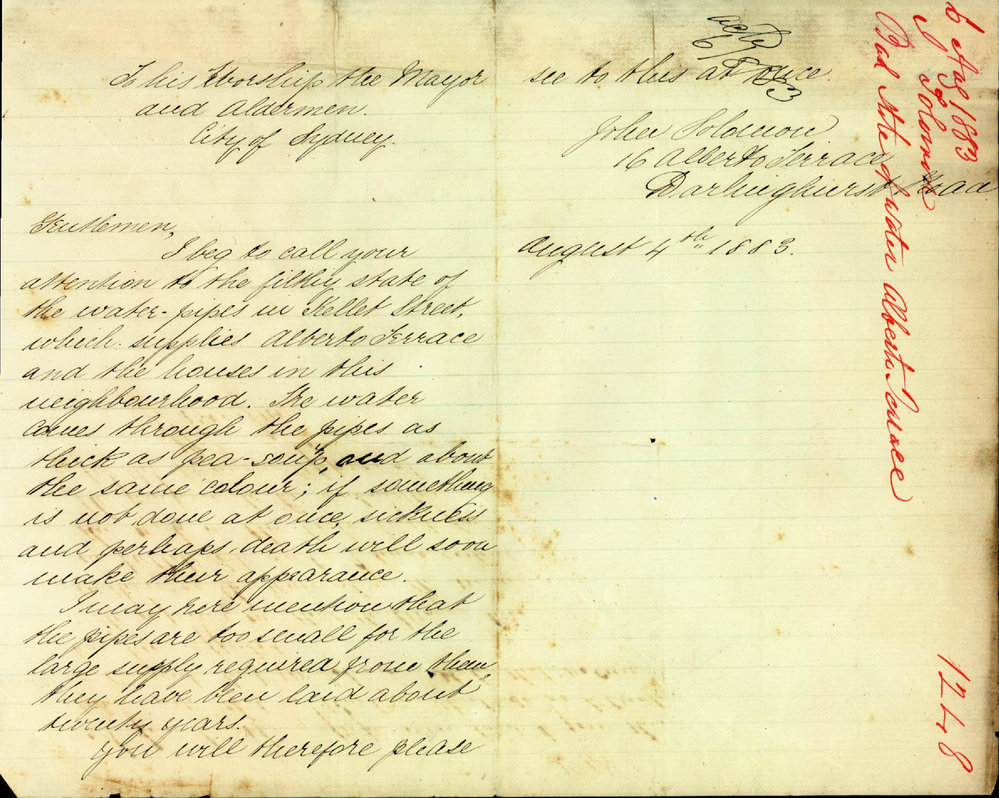 To his Worship the Mayor
and Aldermen.
City of Sydney.
Gentlemen,
I beg to call your
attention to the filthy state of
the water-pipes in Kellet Street,
which supplies Alberto Terrace
and the houses in this
neighbourhood. The water
comes through the pipes as
thick as pea-soup, and about
the same colour; if something
is not done at once, sickness
and perhaps death will soon
make their appearance.
I may here mention that
the pipes are too small for the
large supply required from them,
they have been laid about
twenty years.
You will therefore please
see to this at once.
John Solomon
16 Alberto Terrace
Darlinghurst Road
August 4th 1883.
6/8/83
6 Aug 1883
J Solomon
Bad State of Water Alberto Terrace
1248